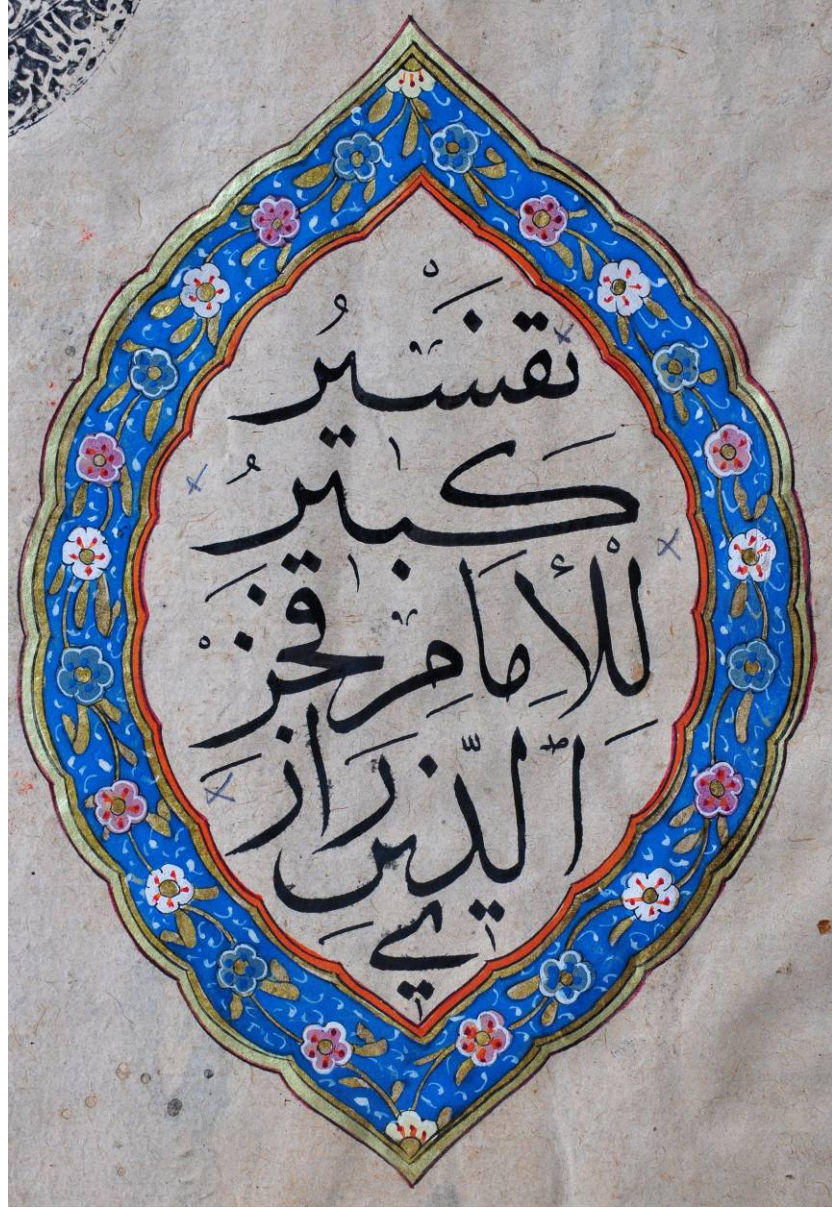 تفسيرُ
كبيرُ
لِلْإِمَامِ فخر
الدّينِ راز
ي